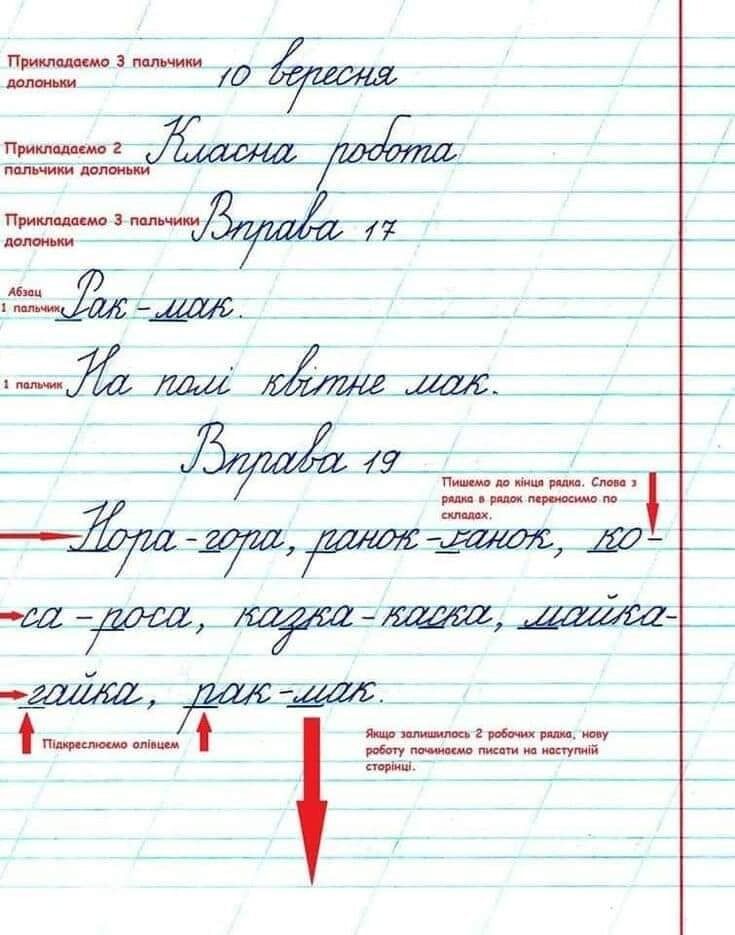 Прикладаємо 3 пальчики
долоньки
10 вересня
Прикладаємо 2
пальчики долоньки
Класна робота
Прикладаємо 3 пальчики
долоньки
Вправа 17
Абзац
1 пальчик
Рак – мак.
1 пальчик
На полі квітне мак.
Вправа 19
Пишемо до кінця рядка. Слова з
рядка в рядок переносимо по
складах.
Нора – гора, ранок – ганок, ко-
са – роса, казка – каска, майка-
гайка, рак – мак.
Підкреслюємо олівцем
Якщо залишилось 2 робочих рядка, нову
роботу починаємо писати на наступній
сторінці.